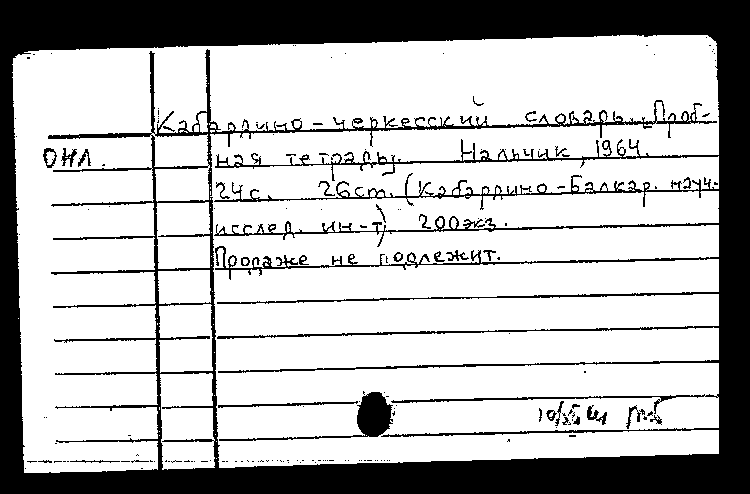 Кабардино-черкесский словарь. Проб-
ОНЛ. ная тетрадь. Нальчик, 1964.
24с. 26см. (Кабардино-Балкар. науч.-
исслед. ин-т) 200экз.
Продаже не подлежит.